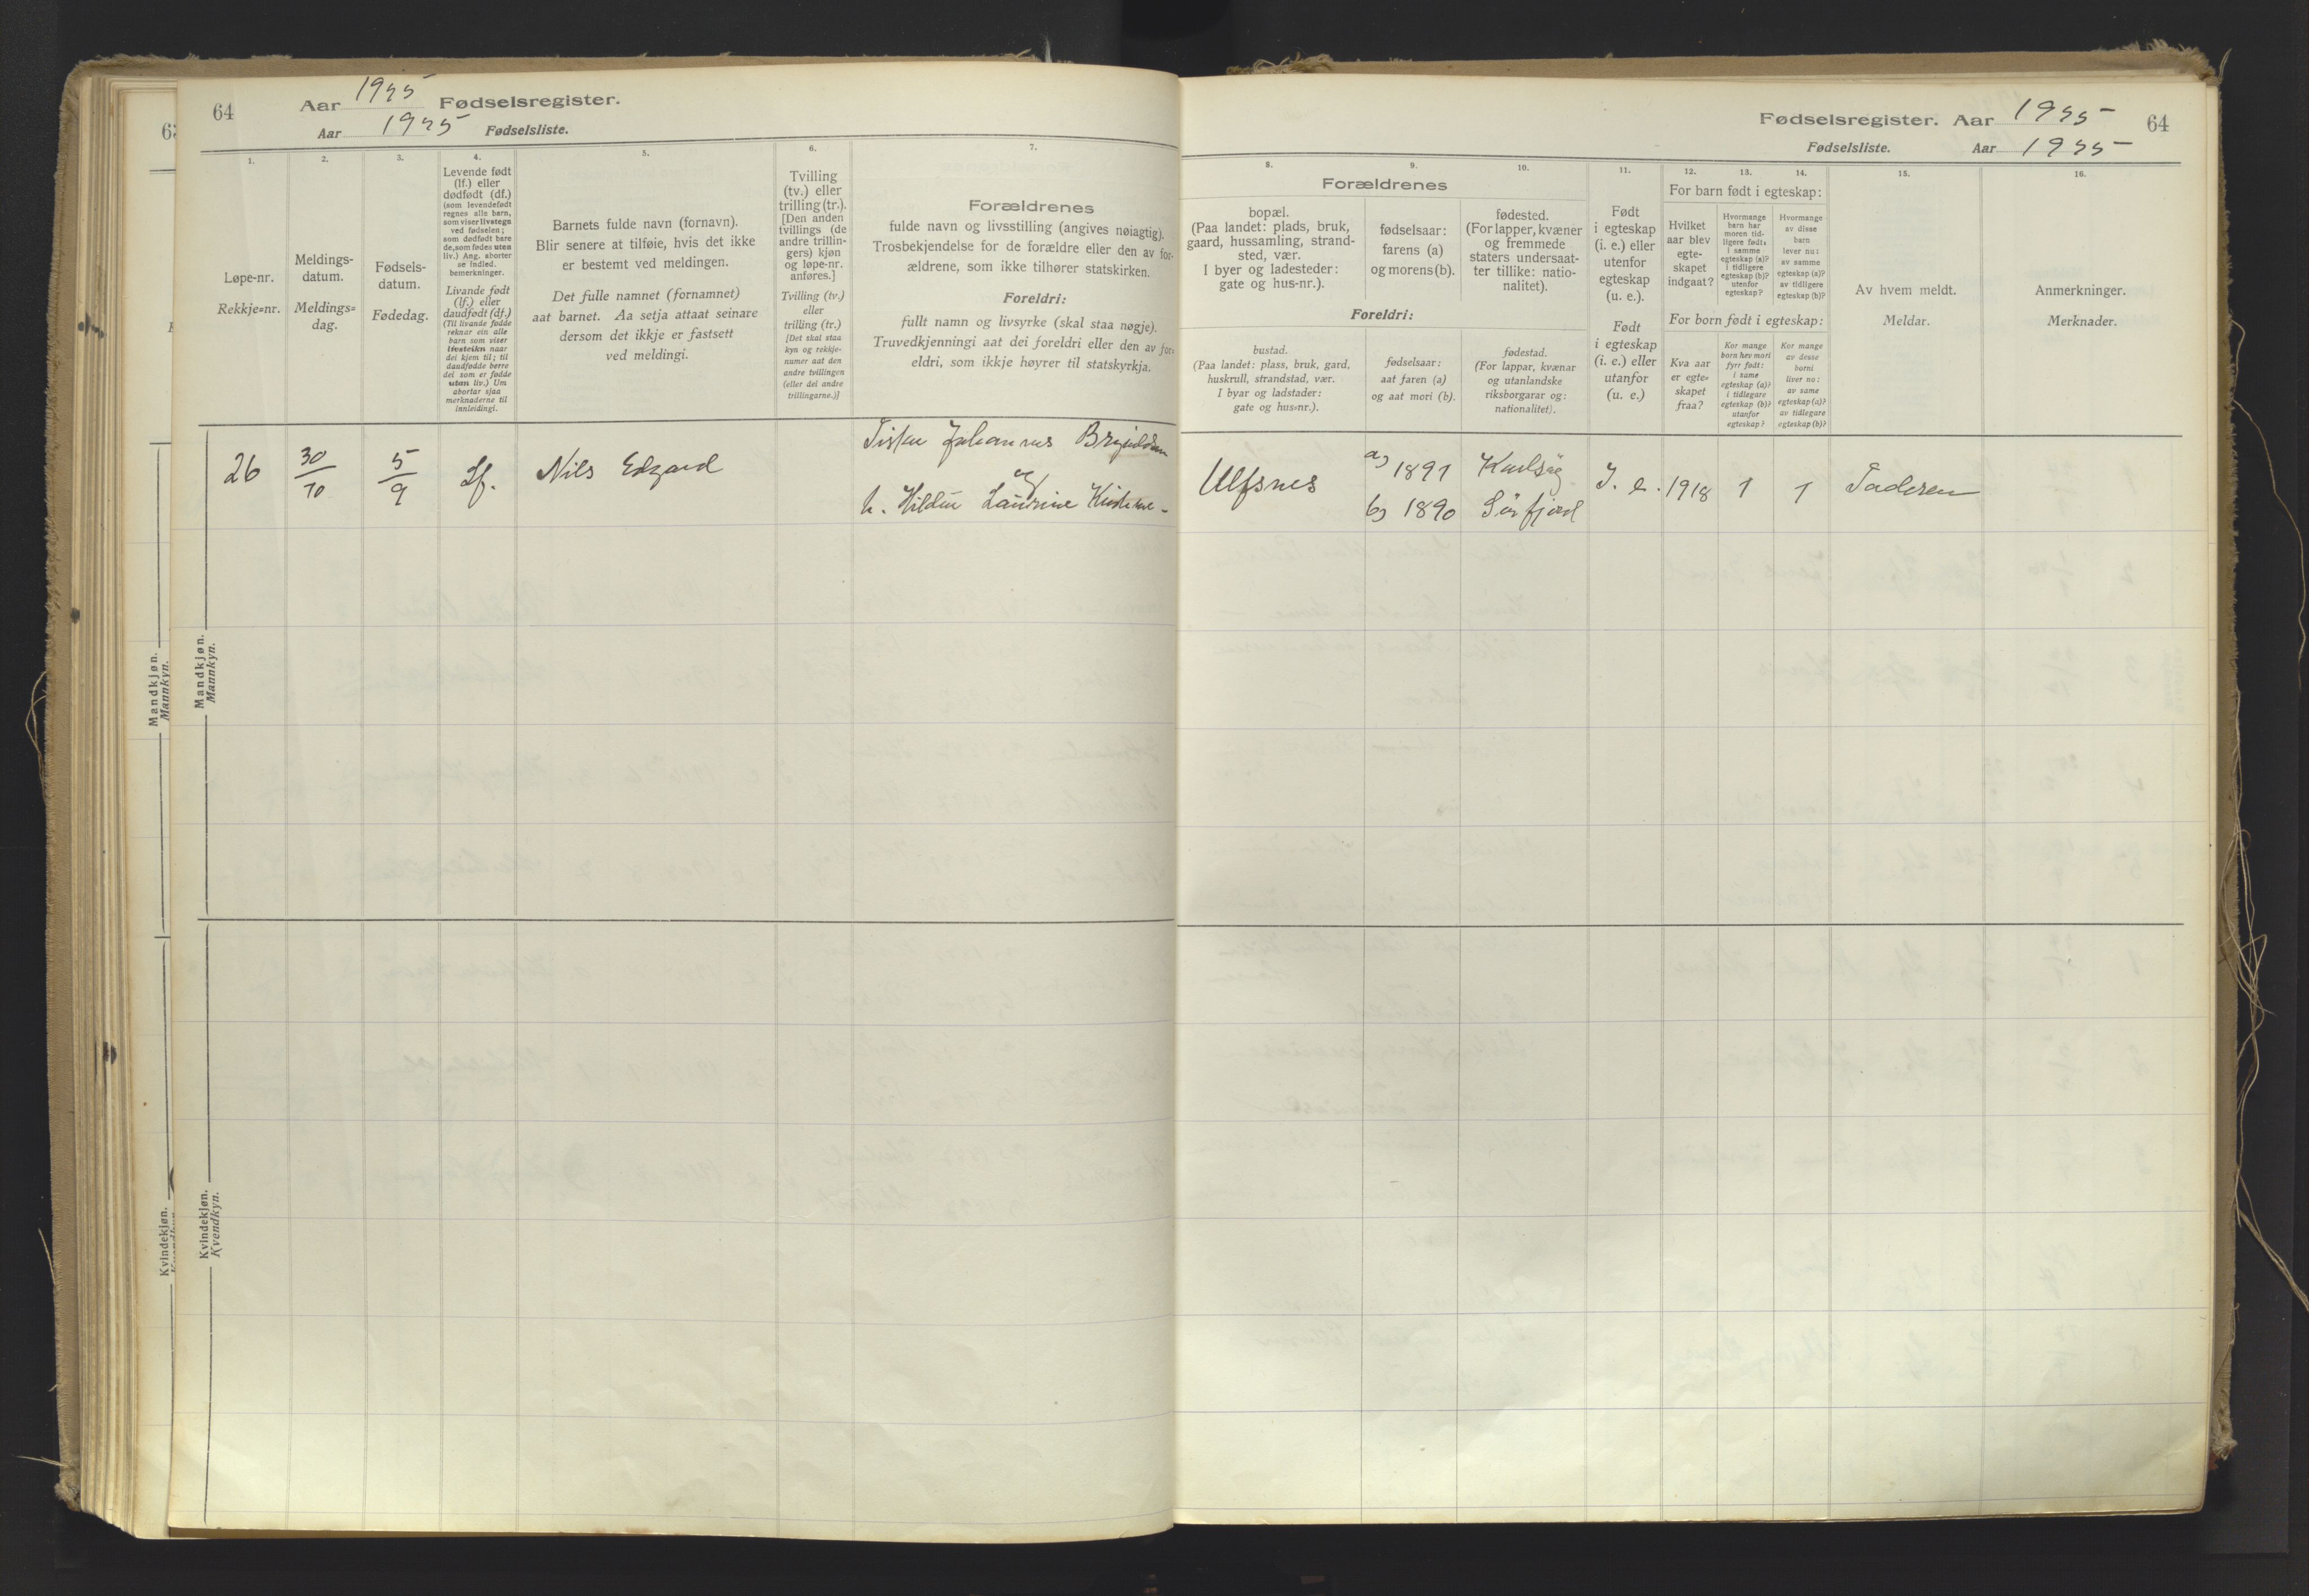 64
Aar 1925 Fødselsregister.
Aar 1925 Fødselsliste.
1.
Løpe-nr.
Rekkje=nr.
2.
Meldings-
datum.
Meldings=
dag.
3.
Fødsels-
datum.
Fødedag.
4.
Levende født
(lf.) eller
dødfødt (df.)
(som levendefødt
regnes alle barn,
som viser livstegn
ved fødselen;
som dødfødt bare
de, som fødes uten
liv.) Ang. aborter
se indled.
bemerkninger.
Livande født
(lf.) eller
daudfødt (df.)
(Til livande fødde
reknar ein alle
barn som viser
livsteikn naar
dei kjem til; til
daudfødde berre
dei som er fødde
utan liv.) Um
abortar sjaa
merknaderne til
innleidingi.
5.
Barnets fulde navn (fornavn).
Blir senere at tilføie, hvis det ikke
er bestemt ved meldingen.
Det fulle namnet (fornamnet)
aat barnet. Aa setja attaat seinare
dersom det ikkje er fastsett
ved meldingi.
6.
Tvilling
(tv.) eller
trilling (tr.).
[Den anden
tvillings (de
andre trillin-
gers) kjøn
og løpe-nr.
anføres.]
Tvilling (tv.)
eller
trilling (tr.)
[Det skal staa
kyn og rekkje-
numer aat den
andre tvillingen
(eller dei andre
trillingarne.)]
7.
Forældrenes
fulde navn og livsstilling (angives nøiagtig).
Trosbekjendelse for de forældre eller den av for-
ældrene, som ikke tilhører statskirken.
Foreldri:
fullt namn og livsyrke (skal staa nøgje).
Truvedkjenningi aat dei foreldri eller den av for-
eldri, som ikkje høyrer til statskyrkja.
Mandkjøn.
Mannkyn.
26
30/10
5/9
Lf.
Nils Edgard
Fisker Johannes
og
h. Hildur Laurine
Kvindekjøn.
Kvendkyn.
Mandkjøn.
Mannkyn.
Kvindekjøn.
Fødselsregister. Aar 1925 64
Fødselsliste. Aar 1925
8.
9.
10.
Forældrenes
bopæl.
(Paa landet: plads, bruk,
gaard, hussamling, strand-
sted, vær.
I byer og ladesteder:
gate og hus-nr.).
fødselsaar:
farens (a)
og morens (b).
fødested.
(For lapper, kvæner
og fremmede
staters undersaat-
ter tillike: natio-
nalitet).
Foreldri:
bustad.
(Paa landet: plass, bruk, gard,
huskrull, strandstad, vær.
I byar og ladstader:
gate og hus=nr.).
fødselsaar:
aat faren (a)
og aat mori (b).
fødestad.
(For lappar, kvænar
og utanlandske
riksborgarar og:
nationalitet).
11.
Født
i egteskap
(i. e.) eller
utenfor
egteskap
(u. e.).
Født
i egteskap
(i. e.) eller
utanfor
(u. e.)
12.
13.
14.
For barn født i egteskap:
Hvilket
aar blev
egte-
skapet
indgaat?
Hvormange
barn har
moren tid-
ligere født:
i samme
egteskap (a)?
i tidligere
egteskap (b)?
utenfor
egteskap?
Hvormange
av disse
barn
lever nu:
av samme
egteskap (a)?
av tidligere
egteskap (b)?
For born født i egteskap:
Kva aar
er egte=
skapet
fraa?
Kor mange
born hev mori
fyrr født:
i same
egteskap (a)?
i tidlegare
egteskap (b)?
utanfor
egteskap?
Kor mange
av desse
borni
liver no:
av same
egteskap (a)?
av tidlegare
egteskap (b)?
15.
Av hvem meldt.
Meldar.
16.
Anmerkninger.
Merknader.
Ulfsnes
a) 1891
b) 1890
Karlsøy
Sørfjord
I. e.
1918
1
1
Faderen